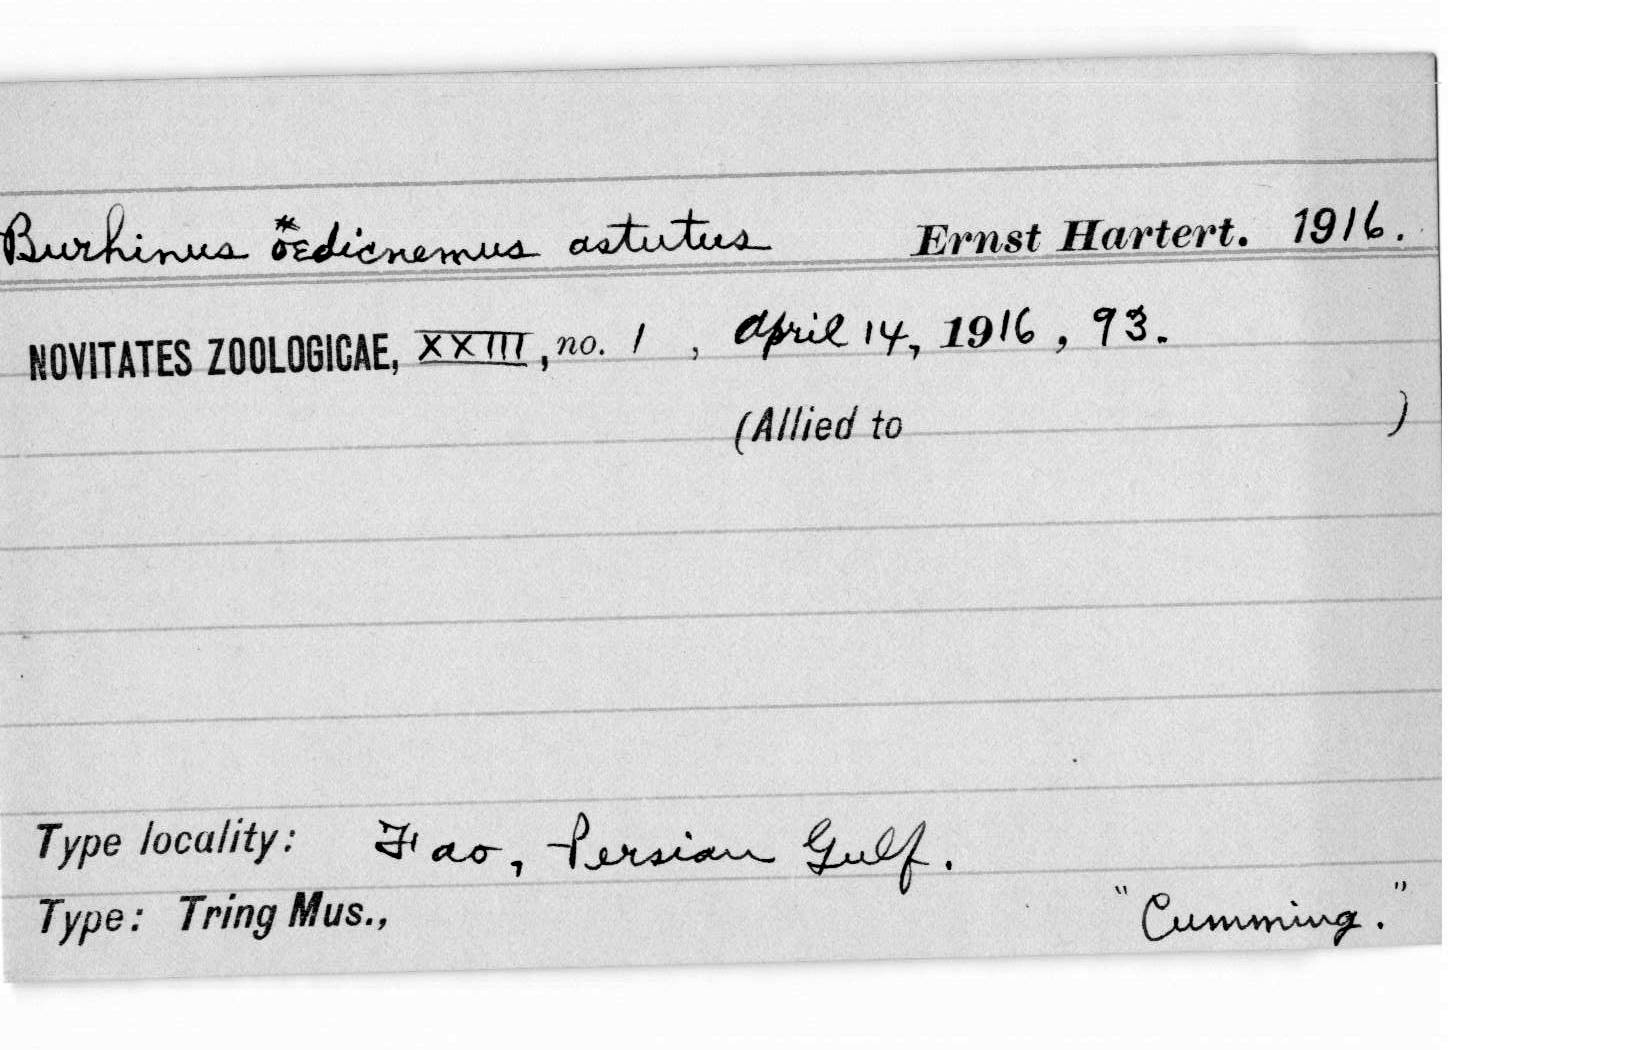 Burhinus œdicnemus astutus Ernst Hartert. 1916.
NOVITATES ZOOLOGICAE, XXIII, no. 1, April 14, 1916, 93.
(Allied to )
Type locality: Fao, Persian Gulf.
Type: Tring Mus., "Cumming."